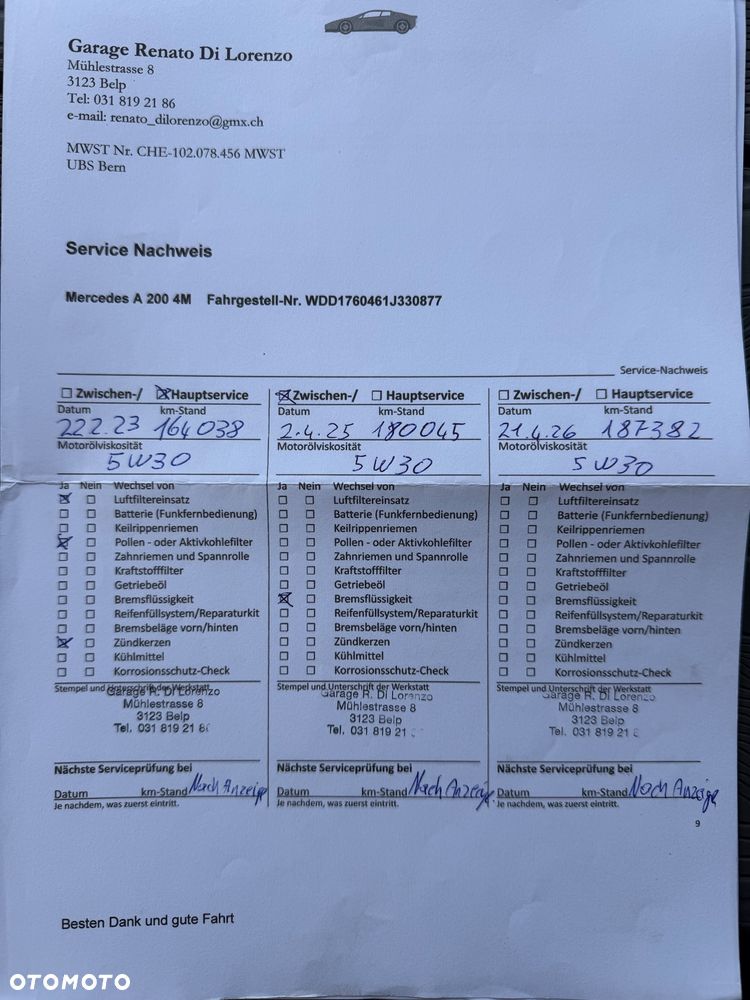 Garage Renato Di Lorenzo
Mühlestrasse 8
3123 Belp
Tel: 031 819 21 86
e-mail: renato_dilorenzo@gmx.ch
MWST Nr. CHE-102.078.456 MWST
UBS Bern
Service Nachweis
Mercedes A 200 4M Fahrgestell-Nr. WDD1760461J330877
Service-Nachweis
Zwischen-/ Hauptservice
Datum km-Stand
22.2.23 164038
Motorölviskosität
5W30
Ja Nein Wechsel von
Luftfiltereinsatz
Batterie (Funkfernbedienung)
Keilrippenriemen
Pollen - oder Aktivkohlefilter
Zahnriemen und Spannrolle
Kraftstofffilter
Getriebeöl
Bremsflüssigkeit
Reifenfüllsystem/Reparaturkit
Bremsbeläge vorn/hinten
Zündkerzen
Kühlmittel
Korrosionsschutz-Check
Stempel und Unterschrift der Werkstatt
Garage R. Di Lorenzo
Mühlestrasse 8
3123 Belp
Tel. 031 819 21
Nächste Serviceprüfung bei
Datum km-Stand Nach Anzeige
Je nachdem, was zuerst eintritt.
Zwischen-/ Hauptservice
Datum km-Stand
2.4.25 180045
Motorölviskosität
5W30
Ja Nein Wechsel von
Luftfiltereinsatz
Batterie (Funkfernbedienung)
Keilrippenriemen
Pollen - oder Aktivkohlefilter
Zahnriemen und Spannrolle
Kraftstofffilter
Getriebeöl
Bremsflüssigkeit
Reifenfüllsystem/Reparaturkit
Bremsbeläge vorn/hinten
Zündkerzen
Kühlmittel
Korrosionsschutz-Check
Stempel und Unterschrift der Werkstatt
Garage R. Di Lorenzo
Mühlestrasse 8
3123 Belp
Tel. 031 819 21
Nächste Serviceprüfung bei
Datum km-Stand Nach Anzeige
Je nachdem, was zuerst eintritt.
Zwischen-/ Hauptservice
Datum km-Stand
21.4.26 187382
Motorölviskosität
5W30
Ja Nein Wechsel von
Luftfiltereinsatz
Batterie (Funkfernbedienung)
Keilrippenriemen
Pollen - oder Aktivkohlefilter
Zahnriemen und Spannrolle
Kraftstofffilter
Getriebeöl
Bremsflüssigkeit
Reifenfüllsystem/Reparaturkit
Bremsbeläge vorn/hinten
Zündkerzen
Kühlmittel
Korrosionsschutz-Check
Stempel und Unterschrift der Werkstatt
Garage R. Di Lorenzo
Mühlestrasse 8
3123 Belp
Tel. 031 819 21
Nächste Serviceprüfung bei
Datum km-Stand Nach Anzeige
Je nachdem, was zuerst eintritt.
9
Besten Dank und gute Fahrt
OTOMOTO